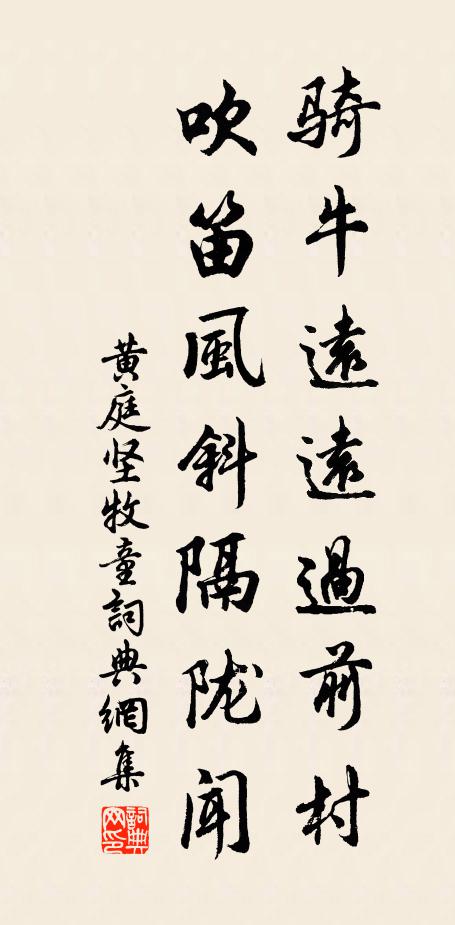 騎牛遠遠過前村
吹笛風斜隔陇聞
黄庭坚牧童詞典網集
詞典網印